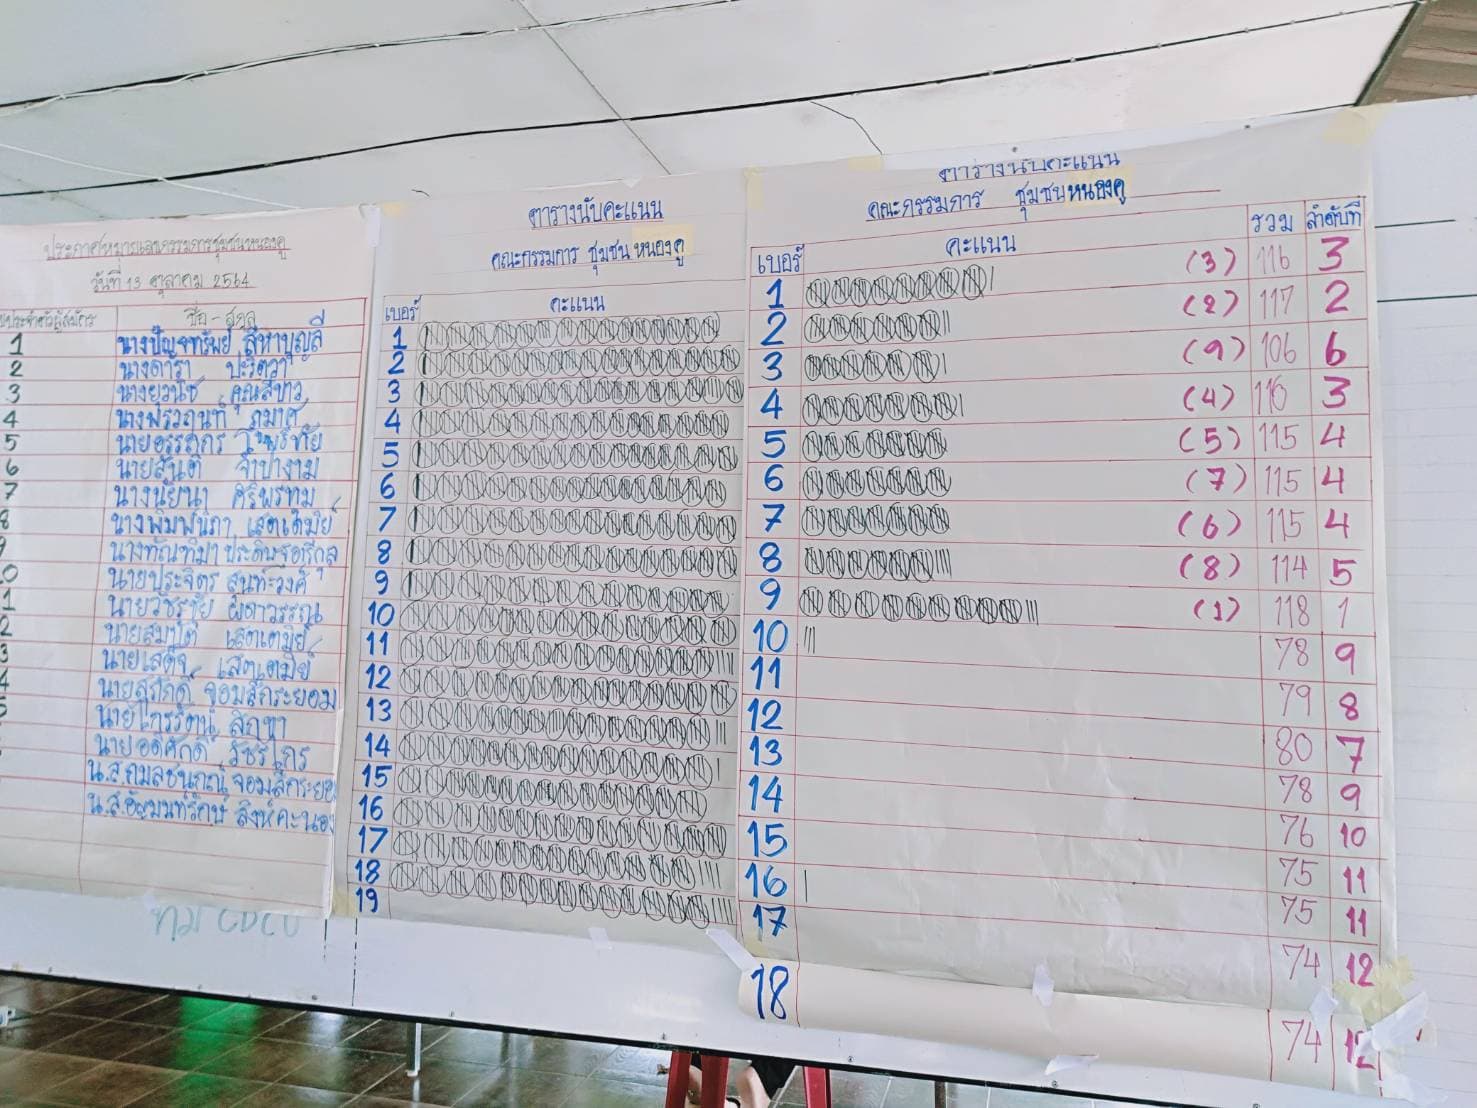 ประกาศหมายเลขกรรมการชุมชนหนองคู
วันที่ 13 ตุลาคม 2564
ชื่อ - สกุล
1 นางปัญจทรัพย์ สีหาบุญลี
2 นางดารา
3 นางยุวนิช คุณสีขาว
4
5 นายอรรถกร โพธิ์ทัย
6 นายสันติ จำปางาม
7 นางนัยนา ศิริพรทม
8 นางพิมพ์นิภา เสตเตมิย์
นางทัณฑิมา
0 นายประจิตร สุนทะวงศ์
1 นายวัชรชัย ผิดาวรรณ
2 นายสมบัติ เสตเตมิย์
3 นายเสด็จ เสตเตมิย์
4 นายสุรศักดิ์ จอมสีกระยอม
5 นายไกรรัตน์ สีกหา
นายอดิศักดิ์ วัชรไกร
น.ส.กมลชนกณ์ จอมสีกระยอ
น.ส.อัญมนทร์รักษ์ สิงห์คะนอง
ตารางนับคะแนน
คณะกรรมการ ชุมชน หนองคู
เบอร์ คะแนน
1
2
3
4
5
6
7
8
9
10
11
12
13
14
15
16
17
18
19
ตารางนับคะแนน
คณะกรรมการ ชุมชนหนองคู
เบอร์ คะแนน รวม ลำดับที่
1 (3) 116 3
2 (2) 117 2
3 (9) 106 6
4 (4) 116 3
5 (5) 115 4
6 (7) 115 4
7 (6) 115 4
8 (8) 114 5
9 (1) 118 1
10 78 9
11 79 8
12 80 7
13 78 9
14 76 10
15 75 11
16 75 11
17 74 12
18 74 12